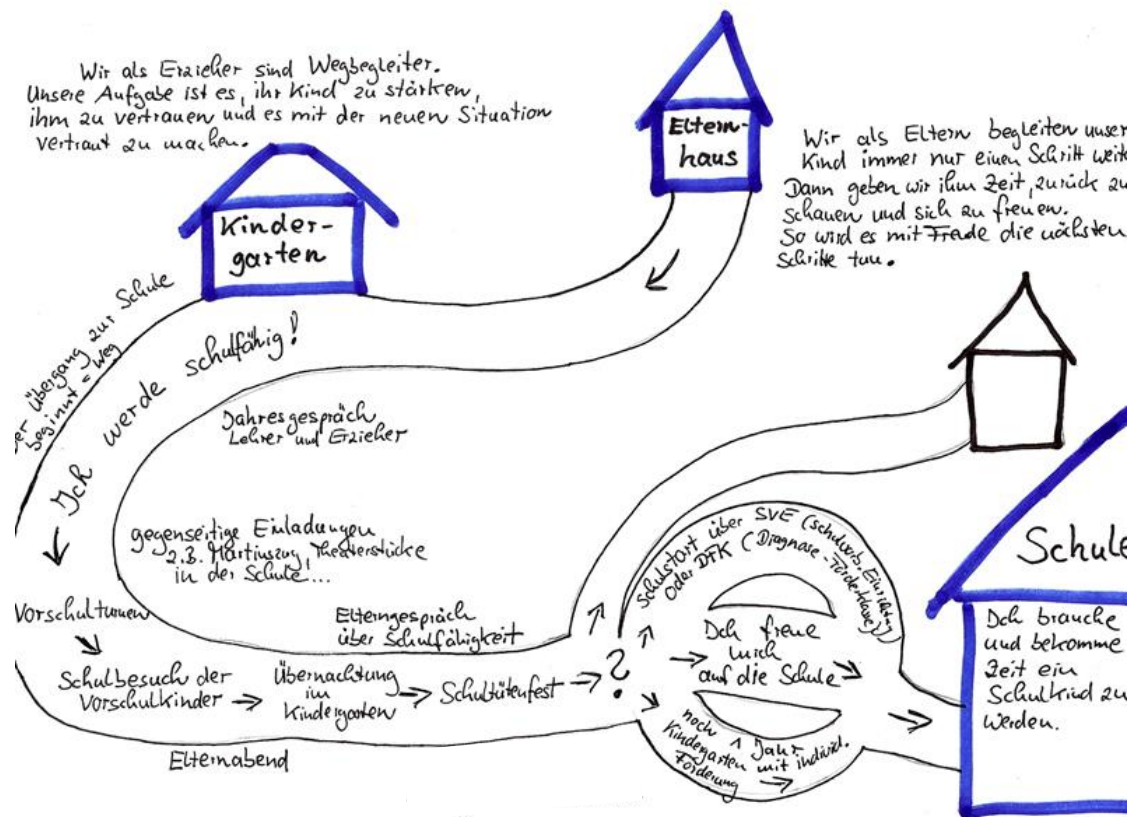 Wir als Erzieher sind Wegbegleiter.
Unsere Aufgabe ist es, ihr Kind zu stärken,
ihm zu vertrauen und es mit der neuen Situation
vertraut zu machen.
Eltern-
haus
Wir als Eltern begleiten unser
Kind immer nur einen Schritt weit
Dann geben wir ihm Zeit, zurück zu
schauen und sich zu freuen.
So wird es mit Freude die nächsten
Schritte tun.
Kinder-
garten
Übergang zur Schule
beginnt = Weg
Ich werde schulfähig!
Jahresgespräch
Lehrer und Erzieher
gegenseitige Einladungen
z.B. Martinszug, Theaterstücke
in der Schule...
Vorschulturnen
Schulbesuch der
Vorschulkinder
Übernachtung
im
Kindergarten
Schultütenfest
?
Elterngespräch
über Schulfähigkeit
Elternabend
Schulstart über SVE (schulvorb. Einrichtung)
oder DFK (Diagnose-Förderklasse)
Ich freue
mich
auf die Schule
noch 1 Jahr
Kindergarten mit individ.
Förderung
Schule
Ich brauche
und bekomme
Zeit ein
Schulkind zu
werden.